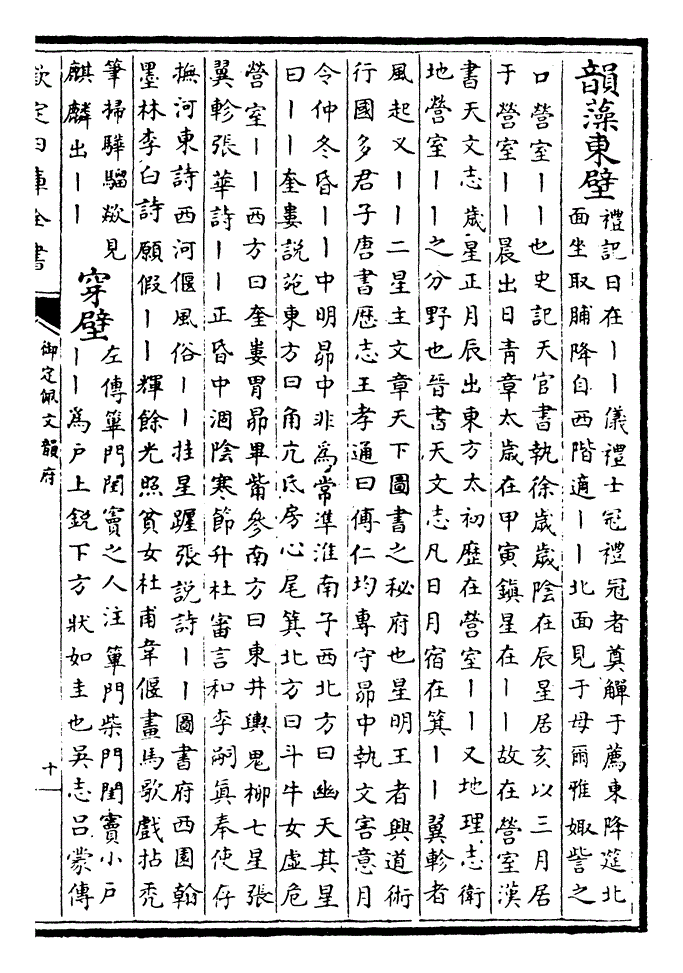 韻藻東壁
禮記日在丨丨儀禮士冠禮冠者奠觶于薦東降筵北
面坐取脯降自西階適丨丨北面見于母爾雅娵訾之
口營室丨丨也史記天官書執徐歲歲陰在辰星居亥以三月居
于營室丨丨晨出曰青章太歲在甲寅鎮星在丨丨故在營室漢
書天文志歲星正月辰出東方太初歷在營室丨丨又地理志衛
地營室丨丨之分野也晉書天文志凡日月宿在箕丨丨翼軫者
風起又丨丨二星主文章天下圖書之秘府也星明王者興道術
行國多君子唐書歷志王孝通曰傅仁均專守昴中執文害意月
令仲冬昏丨丨中明昴中非爲常準淮南子西北方曰幽天其星
曰丨丨奎婁説苑東方曰角亢氐房心尾箕北方曰斗牛女虛危
營室丨丨西方曰奎婁胃昴畢觜參南方曰東井輿鬼柳七星張
翼軫張華詩丨丨正昏中涸陰寒節升杜審言和李嗣真奉使存
撫河東詩西河偃風俗丨丨挂星躔張説詩丨丨圖書府西園翰
墨林李白詩願假丨丨輝餘光照貧女杜甫韋偃畫馬歌戲拈禿
筆掃驊騮欻見
麒麟出丨丨
穿壁
左傳篳門閨竇之人注篳門柴門閨竇小戸
丨丨爲戸上銳下方狀如圭也吳志吕蒙傳
欽定四庫全書
御定佩文韻府
十